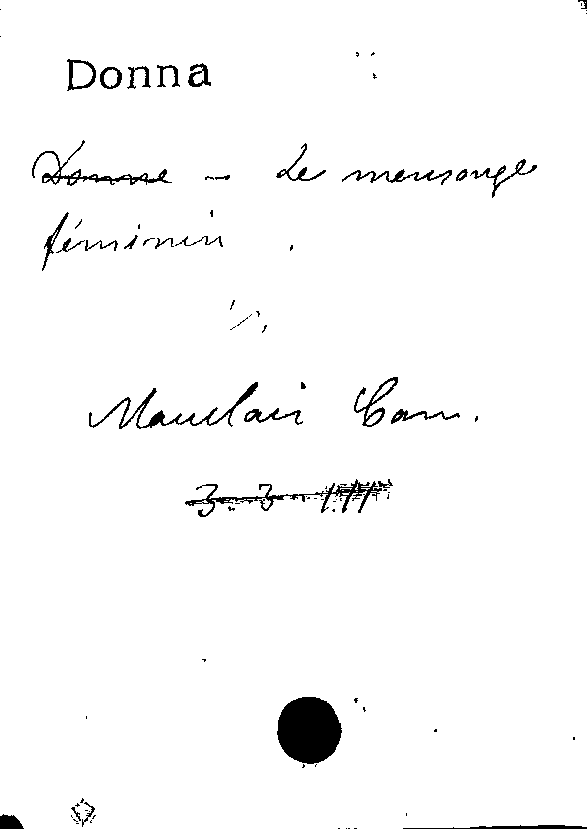 Donna
Donne - Le mensonge
féminin .
Mauclair Cam.
3. 3